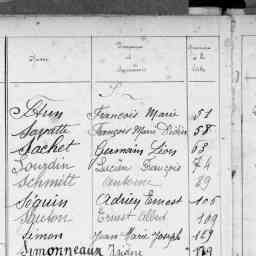 Noms Prénoms et
S
Strun François Marie 51
Sayette François Marie Didier 58
Sachet Germain Léon 63
Sourdin Lucien François 74
Schmitt Antoine 89
Séguin Adrien Ernest 105
Ernest Albert 109
Simon Jean Marie Joseph 129
Simonneaux Isidore 139